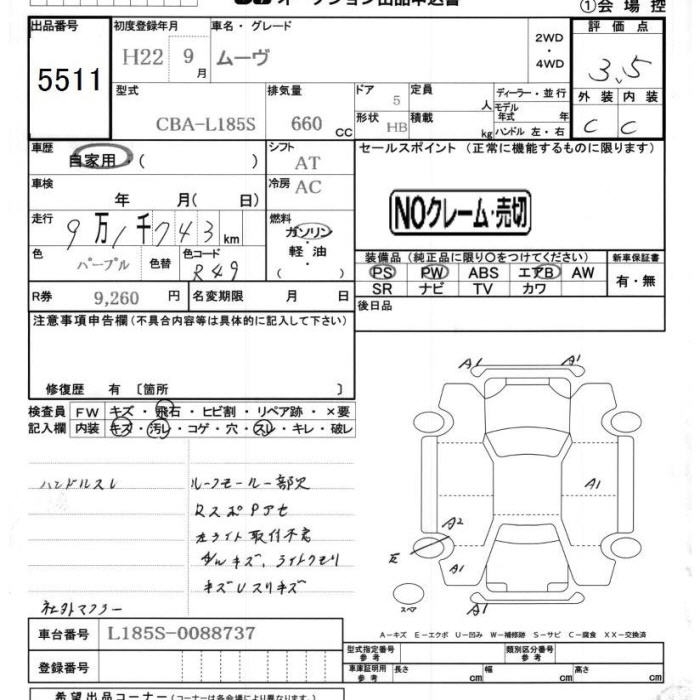 オークション出品申込書
①会場控
出品番号 初度登録年月 車名・グレード 評価点
5511 H22 9月 ムーヴ 2WD・4WD 3.5
型式 排気量 ドア 定員 ディーラー・並行 外装 内装
CBA-L185S 660 CC 5 人 モデル年式 年 C C
形状 HB 積載 kg ハンドル 左・右
車歴 シフト セールスポイント (正常に機能するものに限ります)
自家用・( ) AT
車検 冷房 AC
年 月( 日) NOクレーム・売切
走行 燃料
9万1千743km ガソリン・軽・油
色 色替 色コード ( )
パープル R49
装備品 (純正品に限り○をつけてください) 新車保証書
PS PW ABS エアB AW 有・無
SR ナビ TV カワ
R券 9,260円 名変期限 月 日 後日品
注意事項申告欄 (不具合内容等は具体的に記入して下さい)
修復歴 有 〔箇所 〕
検査員 FW キズ・飛石・ヒビ割・リペア跡・×要
記入欄 内装 キズ・汚レ・コゲ・穴・スレ・キレ・破レ
ハンドルスレ ルーフモール一部欠
RスポPアセ
左ライト取付不良
ダルキズ、ライトクモリ
キズUスリキズ
社外マフラー
A1 A1
A1
A2
E
A1
A1
スペア
A-キズ E-エクボ U-凹み W-補修跡 S-サビ C-腐食 XX-交換済
車台番号 L185S-0088737
登録番号
型式指定番号 参考 類別区分番号 参考
車庫証明用 参考 長さ cm 幅 cm 高さ cm
希望出品コーナー (コーナーは各会場により異なります)